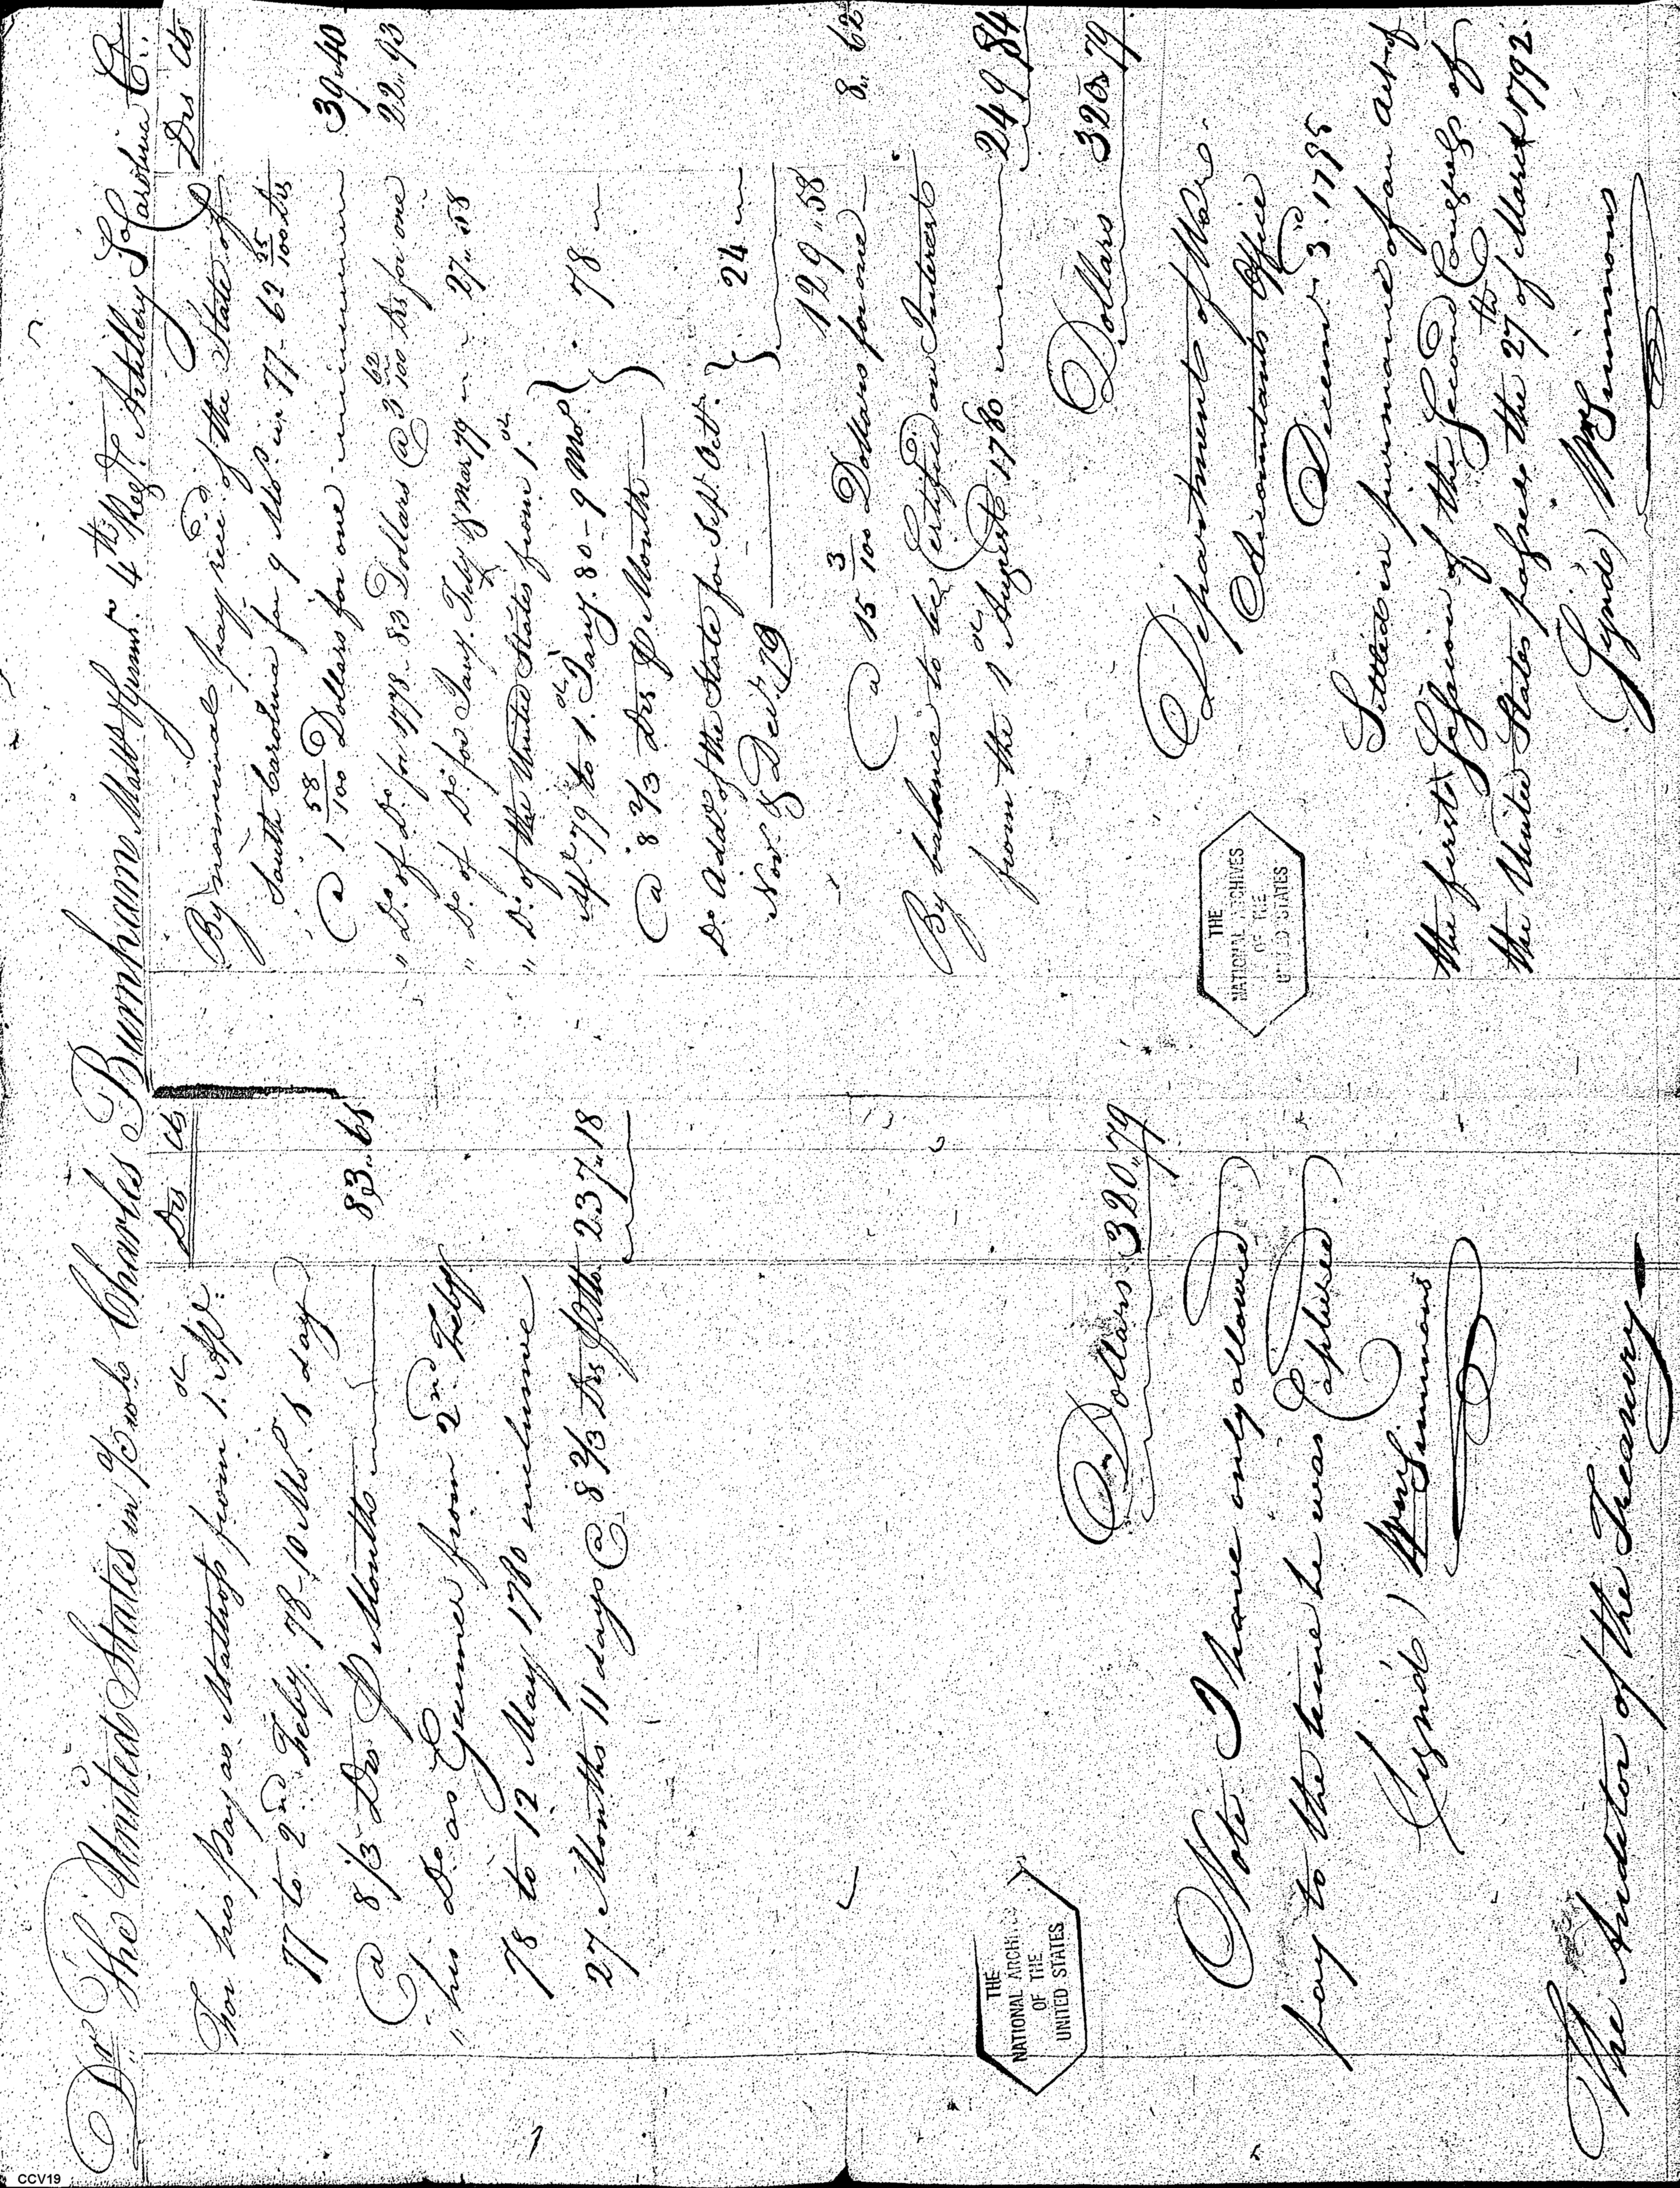 Dr The United States in a/c with Charles Burnham Matt & Gunnr. 4th Regt. Artillery So Carolina Cr.
Drs Cts
For his pay as Matross from 1st Apl.
77 to 2nd Feby. 78-10 Mos. 1 day
@ 8 1/3 Drs P Month
83"61
" his Do as Gunner from 2nd Feby
78 to 12 May 1780 inclusive
27 Months 11 days @ 8 2/3 Drs P Mo. 237"18
Dollars 320"79
Note I have only allowed
pay to the time he was Captured
(Signd) Wm Simmons
The Auditor of the Treasury
Drs Cts
By nominal pay recd of the State of
South Carolina for 9 Mos in 77-62 25/100 Drs
@ 1 58/100 Dollars for one
39"40
" Do of Do for 1778-83 Dollars @ 3 62/100 Drs for one
22"93
" Do of Do for Jany. Feby & Mar 79 27"58
" Do of the United States from 1st
Apl 79 to 1st Jany. 80-9 Mos.
@ 8 2/3 Drs P Month
78
Do Addl of the State for Sept. Oct.
Nov. & Decr. 79
24
129"58
@ 15 3/100 Dollars for one
8"62
By balance to be Certified on Interest
from the 1st August 1780
249"84
Dollars 320"79
Department of War
Accountants Office
December 3rd 1795
Settled in pursuance of an act of
the first Session of the Second Congress of
the United States passed the 27th of March 1792.
(Signd) Wm Simmons
THE
NATIONAL ARCHIVES
OF THE
UNITED STATES
THE
NATIONAL ARCHIVES
OF THE
UNITED STATES
CCV19